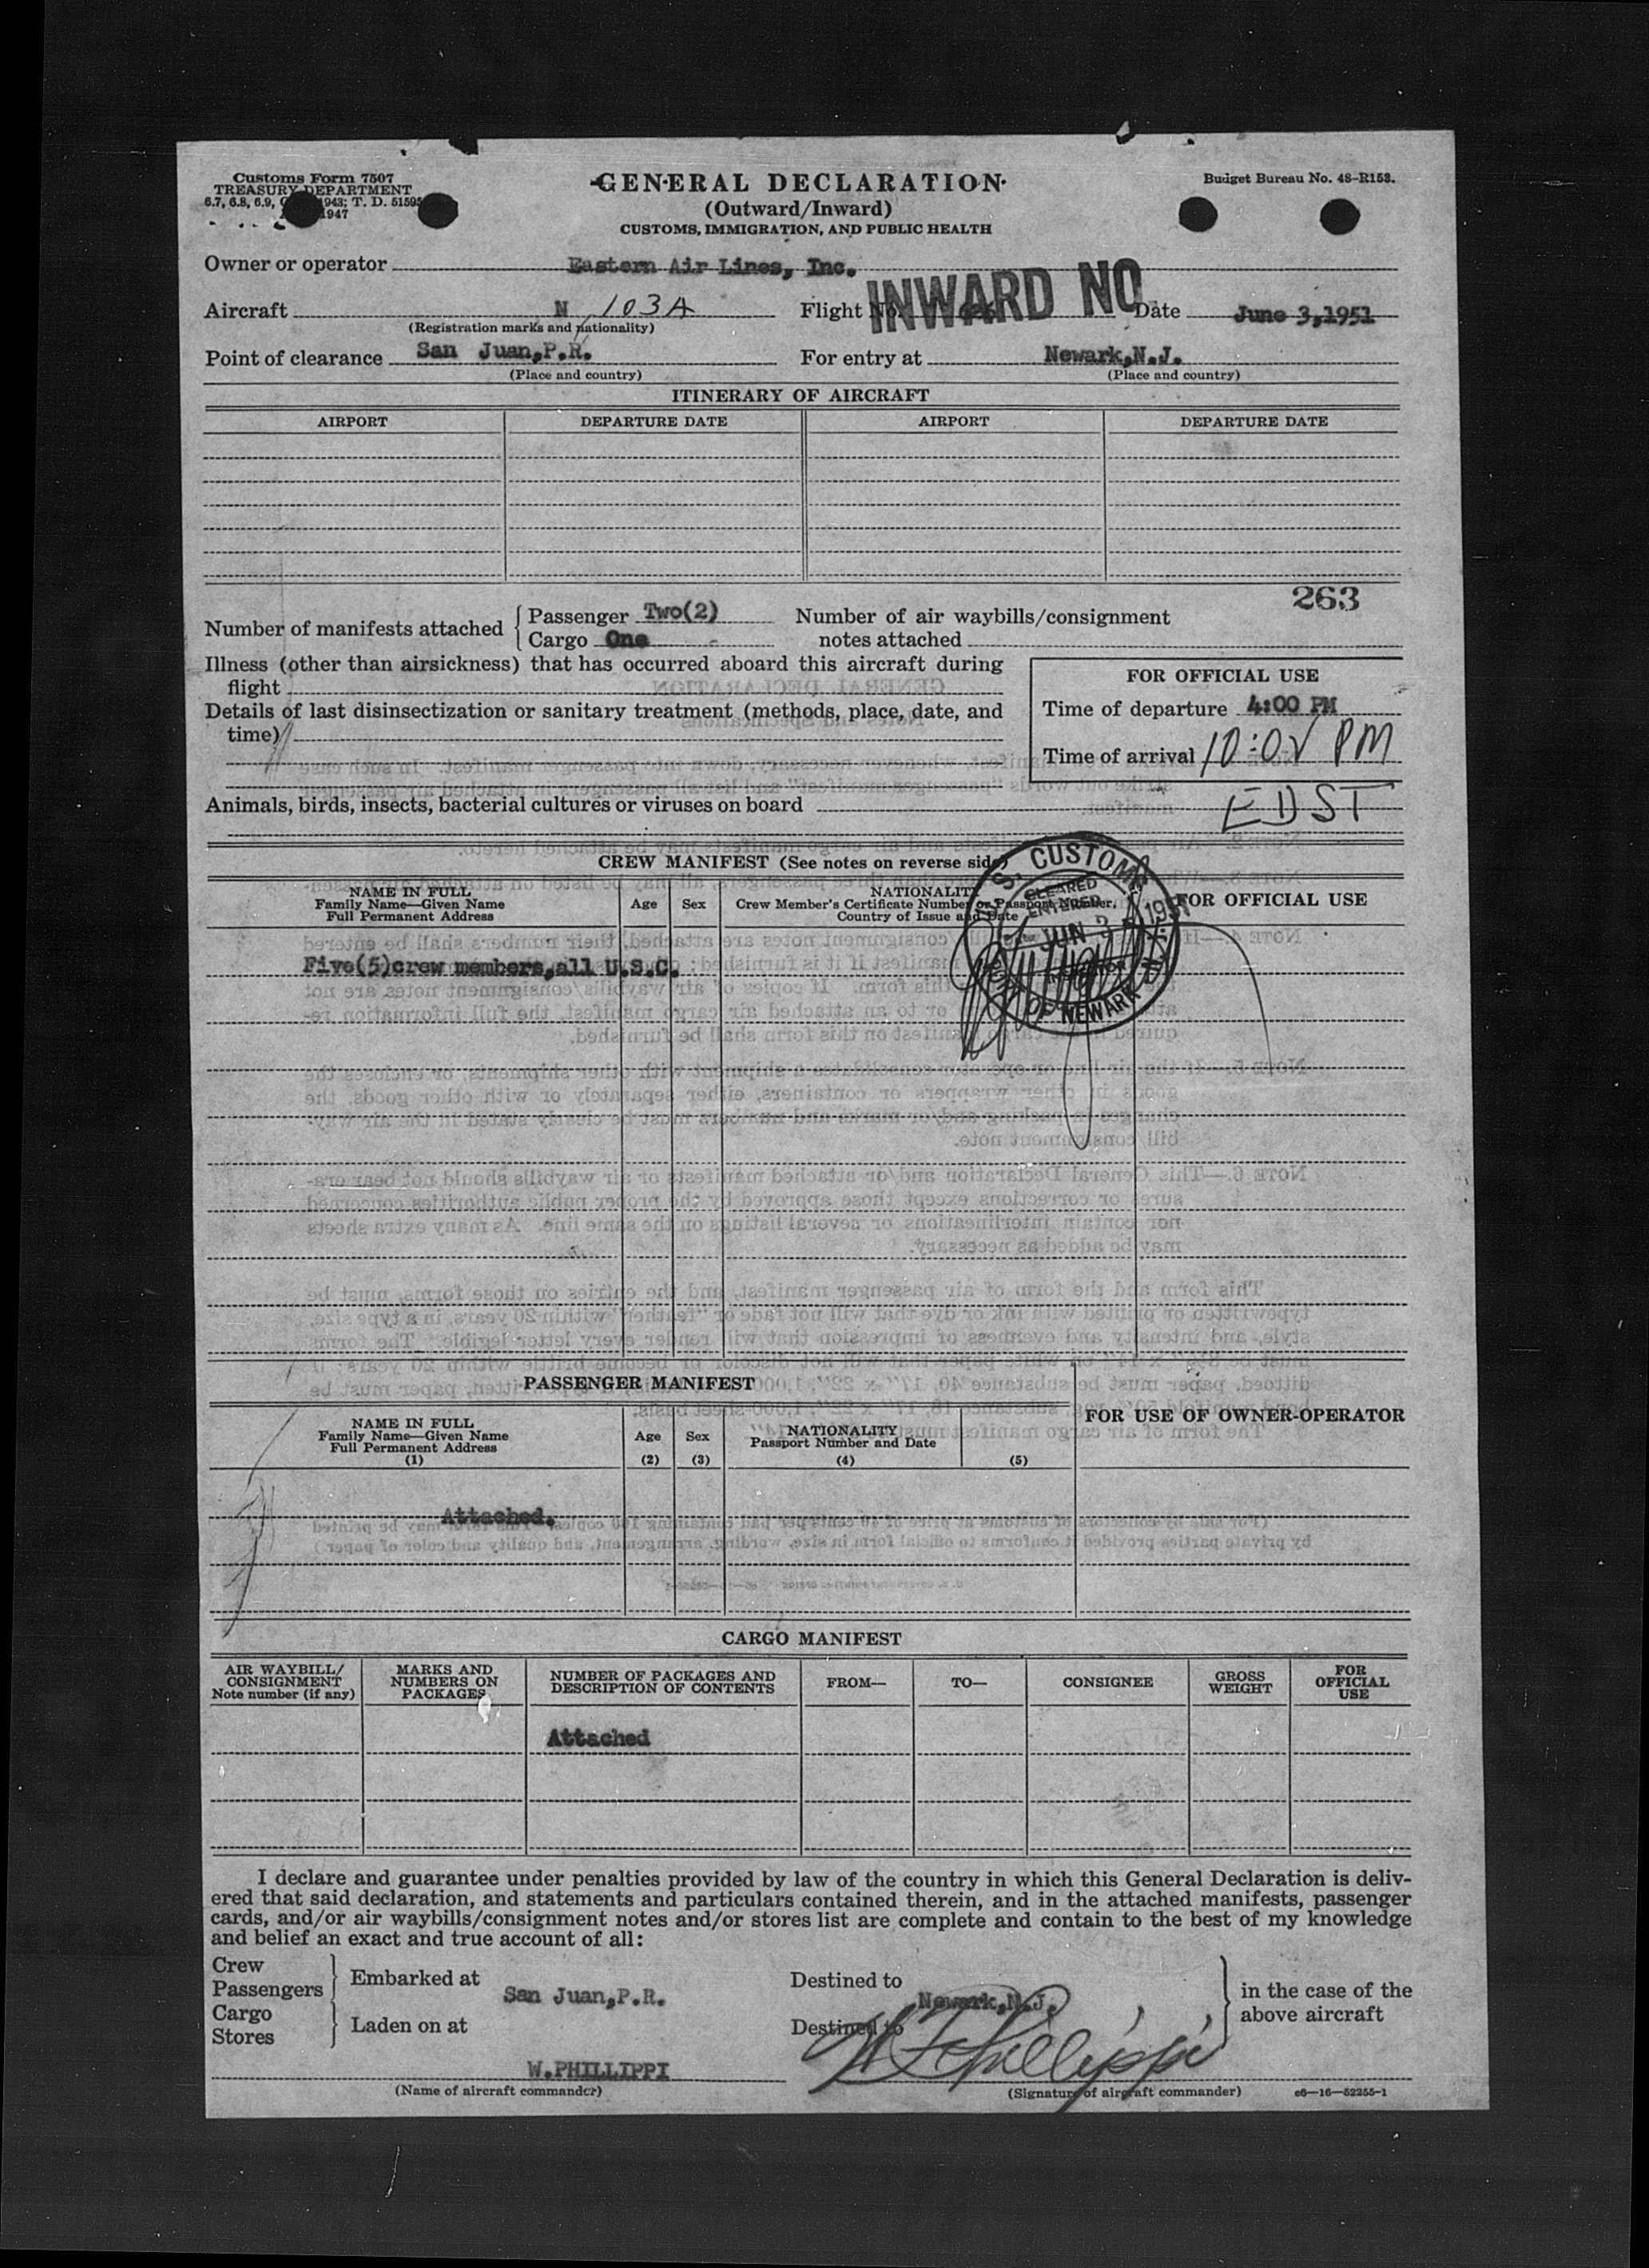 Customs Form 7507
TREASURY DEPARTMENT
6.7, 6.8, 6.9, 1943; T. D. 51595
1947
GENERAL DECLARATION
(Outward/Inward)
CUSTOMS, IMMIGRATION, AND PUBLIC HEALTH
Budget Bureau No. 48-R153.
Owner or operator Eastern Air Lines, Inc.
INWARD NO
Aircraft N 103A Flight No. 626 Date June 3,1951
(Registration marks and nationality)
Point of clearance San Juan,P.R. For entry at Newark,N.J.
(Place and country) (Place and country)
ITINERARY OF AIRCRAFT
AIRPORT DEPARTURE DATE AIRPORT DEPARTURE DATE
263
Number of manifests attached { Passenger Two(2) Number of air waybills/consignment
Cargo One notes attached
Illness (other than airsickness) that has occurred aboard this aircraft during
flight
Details of last disinsectization or sanitary treatment (methods, place, date, and
time)
FOR OFFICIAL USE
Time of departure 4:00 PM
Time of arrival 10:02 PM
EDST
Animals, birds, insects, bacterial cultures or viruses on board
CREW MANIFEST (See notes on reverse side)
NAME IN FULL
Family Name—Given Name
Full Permanent Address
Age Sex
NATIONALITY
Crew Member's Certificate Number or Passport Number,
Country of Issue and Date
FOR OFFICIAL USE
S. CUSTOMS
CLEARED
ENTERED
JUN 3 1951
NEWARK
Five(5)crew members,all U.S.C.
PASSENGER MANIFEST
NAME IN FULL
Family Name—Given Name
Full Permanent Address
(1)
Age
(2)
Sex
(3)
NATIONALITY
Passport Number and Date
(4) (5)
FOR USE OF OWNER-OPERATOR
Attached.
CARGO MANIFEST
AIR WAYBILL/
CONSIGNMENT
Note number (if any)
MARKS AND
NUMBERS ON
PACKAGES
NUMBER OF PACKAGES AND
DESCRIPTION OF CONTENTS
FROM—
TO—
CONSIGNEE
GROSS
WEIGHT
FOR
OFFICIAL
USE
Attached
I declare and guarantee under penalties provided by law of the country in which this General Declaration is deliv-
ered that said declaration, and statements and particulars contained therein, and in the attached manifests, passenger
cards, and/or air waybills/consignment notes and/or stores list are complete and contain to the best of my knowledge
and belief an exact and true account of all:
Crew
Passengers } Embarked at San Juan,P.R. Destined to Newark,N.J.
Cargo
Stores } Laden on at Destined to
in the case of the
above aircraft
W.PHILLIPPI W Phillippi
(Name of aircraft commander) (Signature of aircraft commander) c6—16—52255-1